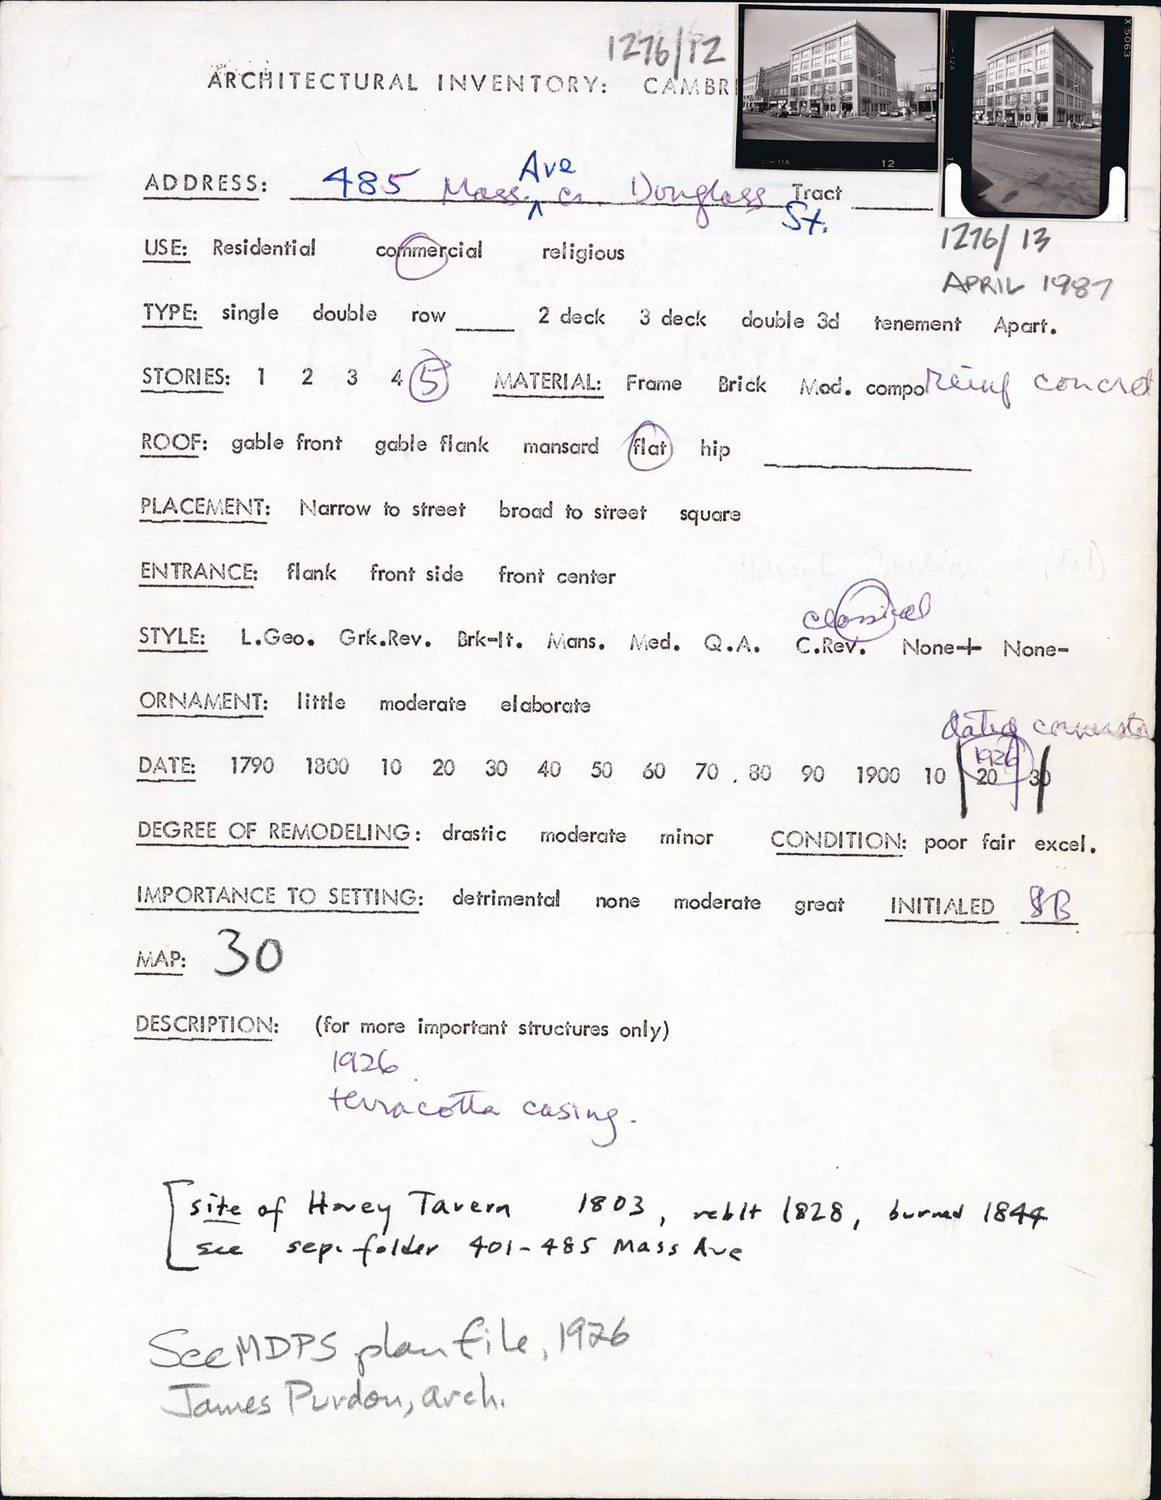 1276/12
ARCHITECTURAL INVENTORY: CAMBRI
X 5063
12
1276/13
APRIL 1987
ADDRESS: 485 Mass. Ave cr. Douglass St. Tract
USE: Residential commercial religious
TYPE: single double row ____ 2 deck 3 deck double 3d tenement Apart.
STORIES: 1 2 3 4 5 MATERIAL: Frame Brick Mod. compo reinf concret
ROOF: gable front gable flank mansard flat hip ____
PLACEMENT: Narrow to street broad to street square
ENTRANCE: flank front side front center
classical
STYLE: L.Geo. Grk.Rev. Brk-It. Mans. Med. Q.A. C.Rev. None+ None-
ORNAMENT: little moderate elaborate
dated cornersto
1926
DATE: 1790 1800 10 20 30 40 50 60 70 80 90 1900 10 20 30
DEGREE OF REMODELING: drastic moderate minor CONDITION: poor fair excel.
IMPORTANCE TO SETTING: detrimental none moderate great INITIALED SB
MAP: 30
DESCRIPTION: (for more important structures only)
1926
terracotta casing.
[site of Hovey Tavern 1803, reblt 1828, burned 1844
see sep. folder 401-485 Mass Ave
See MDPS plan file, 1926
James Purdon, arch.